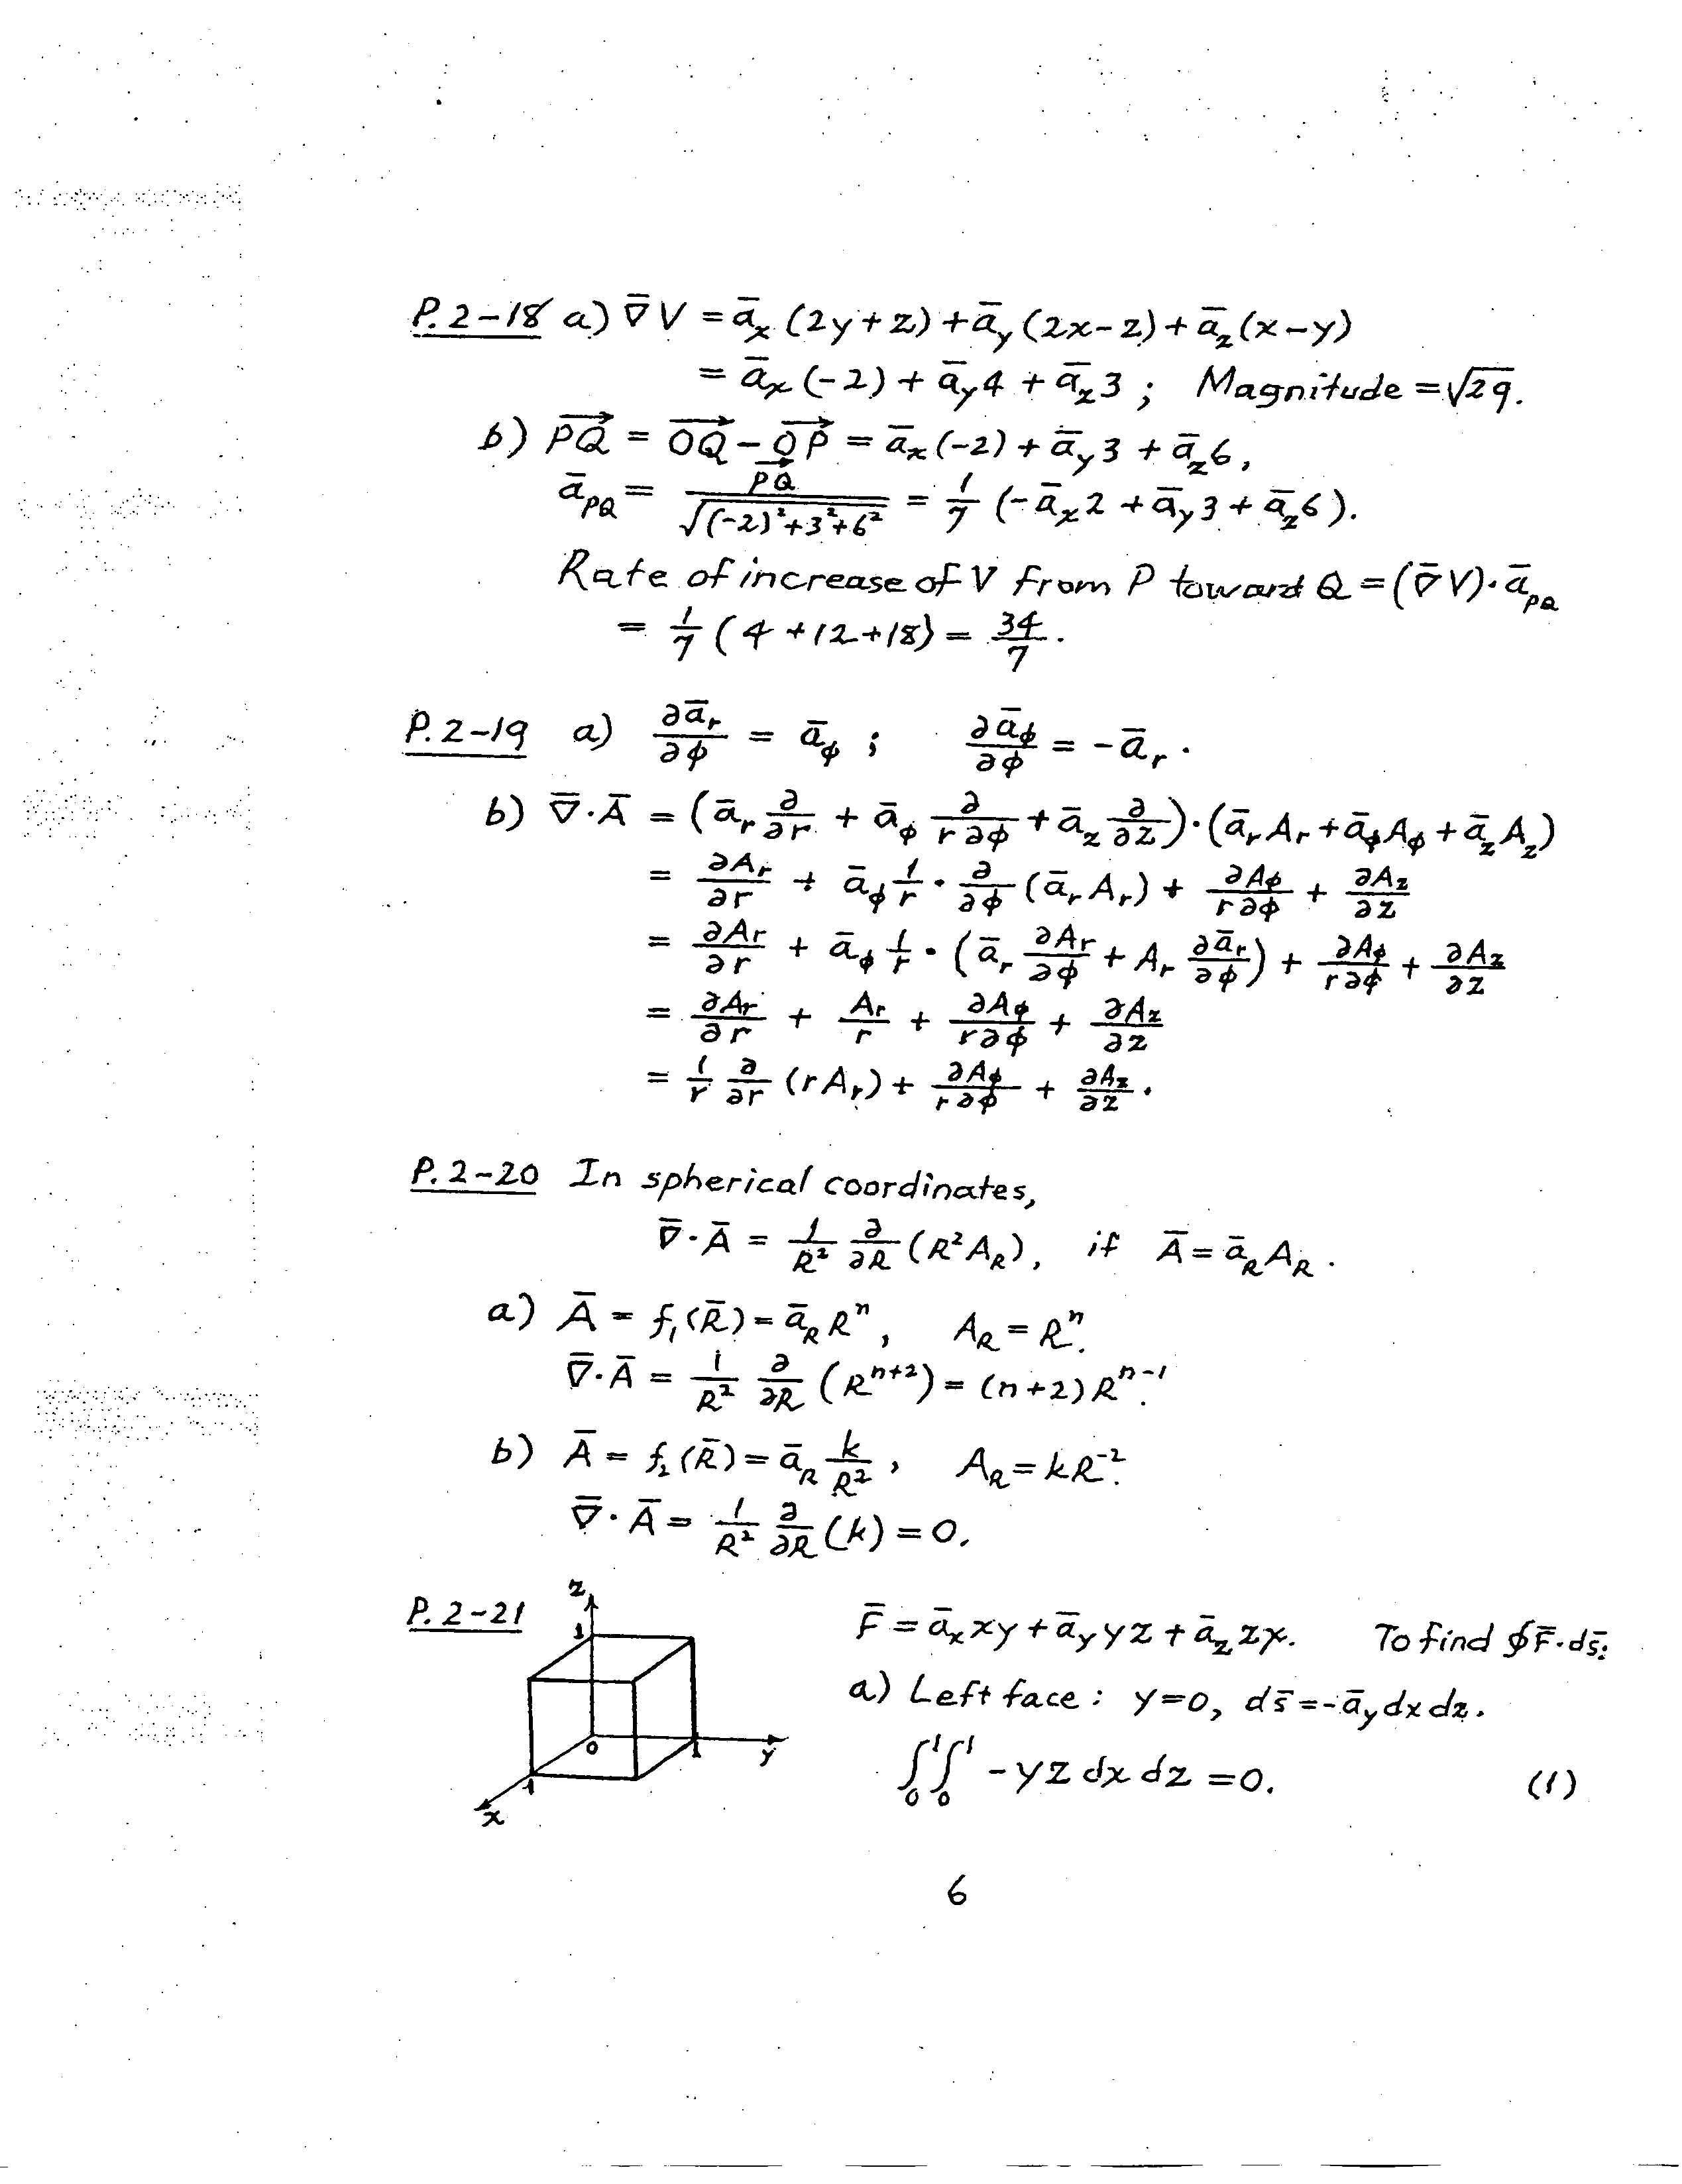 P. 2-18 a) ∇̄V = āx (2y+z) + āy (2x-z) + āz (x-y)
= āx (-2) + āy 4 + āz 3 ; Magnitude = √29.
b) P͞Q⃗ = O͞Q⃗ - O͞P⃗ = āx (-2) + āy 3 + āz 6,
āPQ = PQ⃗ / √((-2)²+3²+6²) = 1/7 (-āx 2 + āy 3 + āz 6).
Rate of increase of V from P toward Q = (∇̄V)·āPQ
= 1/7 (4 + 12 + 18) = 34/7.
P. 2-19 a) ∂ār/∂ϕ = āϕ ; ∂āϕ/∂ϕ = -ār.
b) ∇̄·Ā = (ār ∂/∂r + āϕ ∂/r∂ϕ + āz ∂/∂z)·(ār Ar + āϕ Aϕ + āz Az)
= ∂Ar/∂r + āϕ 1/r · ∂/∂ϕ (ār Ar) + ∂Aϕ/r∂ϕ + ∂Az/∂z
= ∂Ar/∂r + āϕ 1/r · (ār ∂Ar/∂ϕ + Ar ∂ār/∂ϕ) + ∂Aϕ/r∂ϕ + ∂Az/∂z
= ∂Ar/∂r + Ar/r + ∂Aϕ/r∂ϕ + ∂Az/∂z
= 1/r ∂/∂r (r Ar) + ∂Aϕ/r∂ϕ + ∂Az/∂z.
P. 2-20 In spherical coordinates,
∇̄·Ā = 1/R² ∂/∂R (R² AR), if Ā = āR AR.
a) Ā = f₁(R̄) = āR Rⁿ, AR = Rⁿ.
∇̄·Ā = 1/R² ∂/∂R (Rⁿ⁺²) = (n+2) Rⁿ⁻¹.
b) Ā = f₂(R̄) = āR k/R², AR = kR⁻².
∇̄·Ā = 1/R² ∂/∂R (k) = 0.
P. 2-21
z
1
0
1
y
1
x
F̄ = āx xy + āy yz + āz zx. To find ∮F̄·ds̄:
a) Left face: y=0, ds̄ = -āy dx dz.
∫₀¹∫₀¹ -yz dx dz = 0. (1)
6